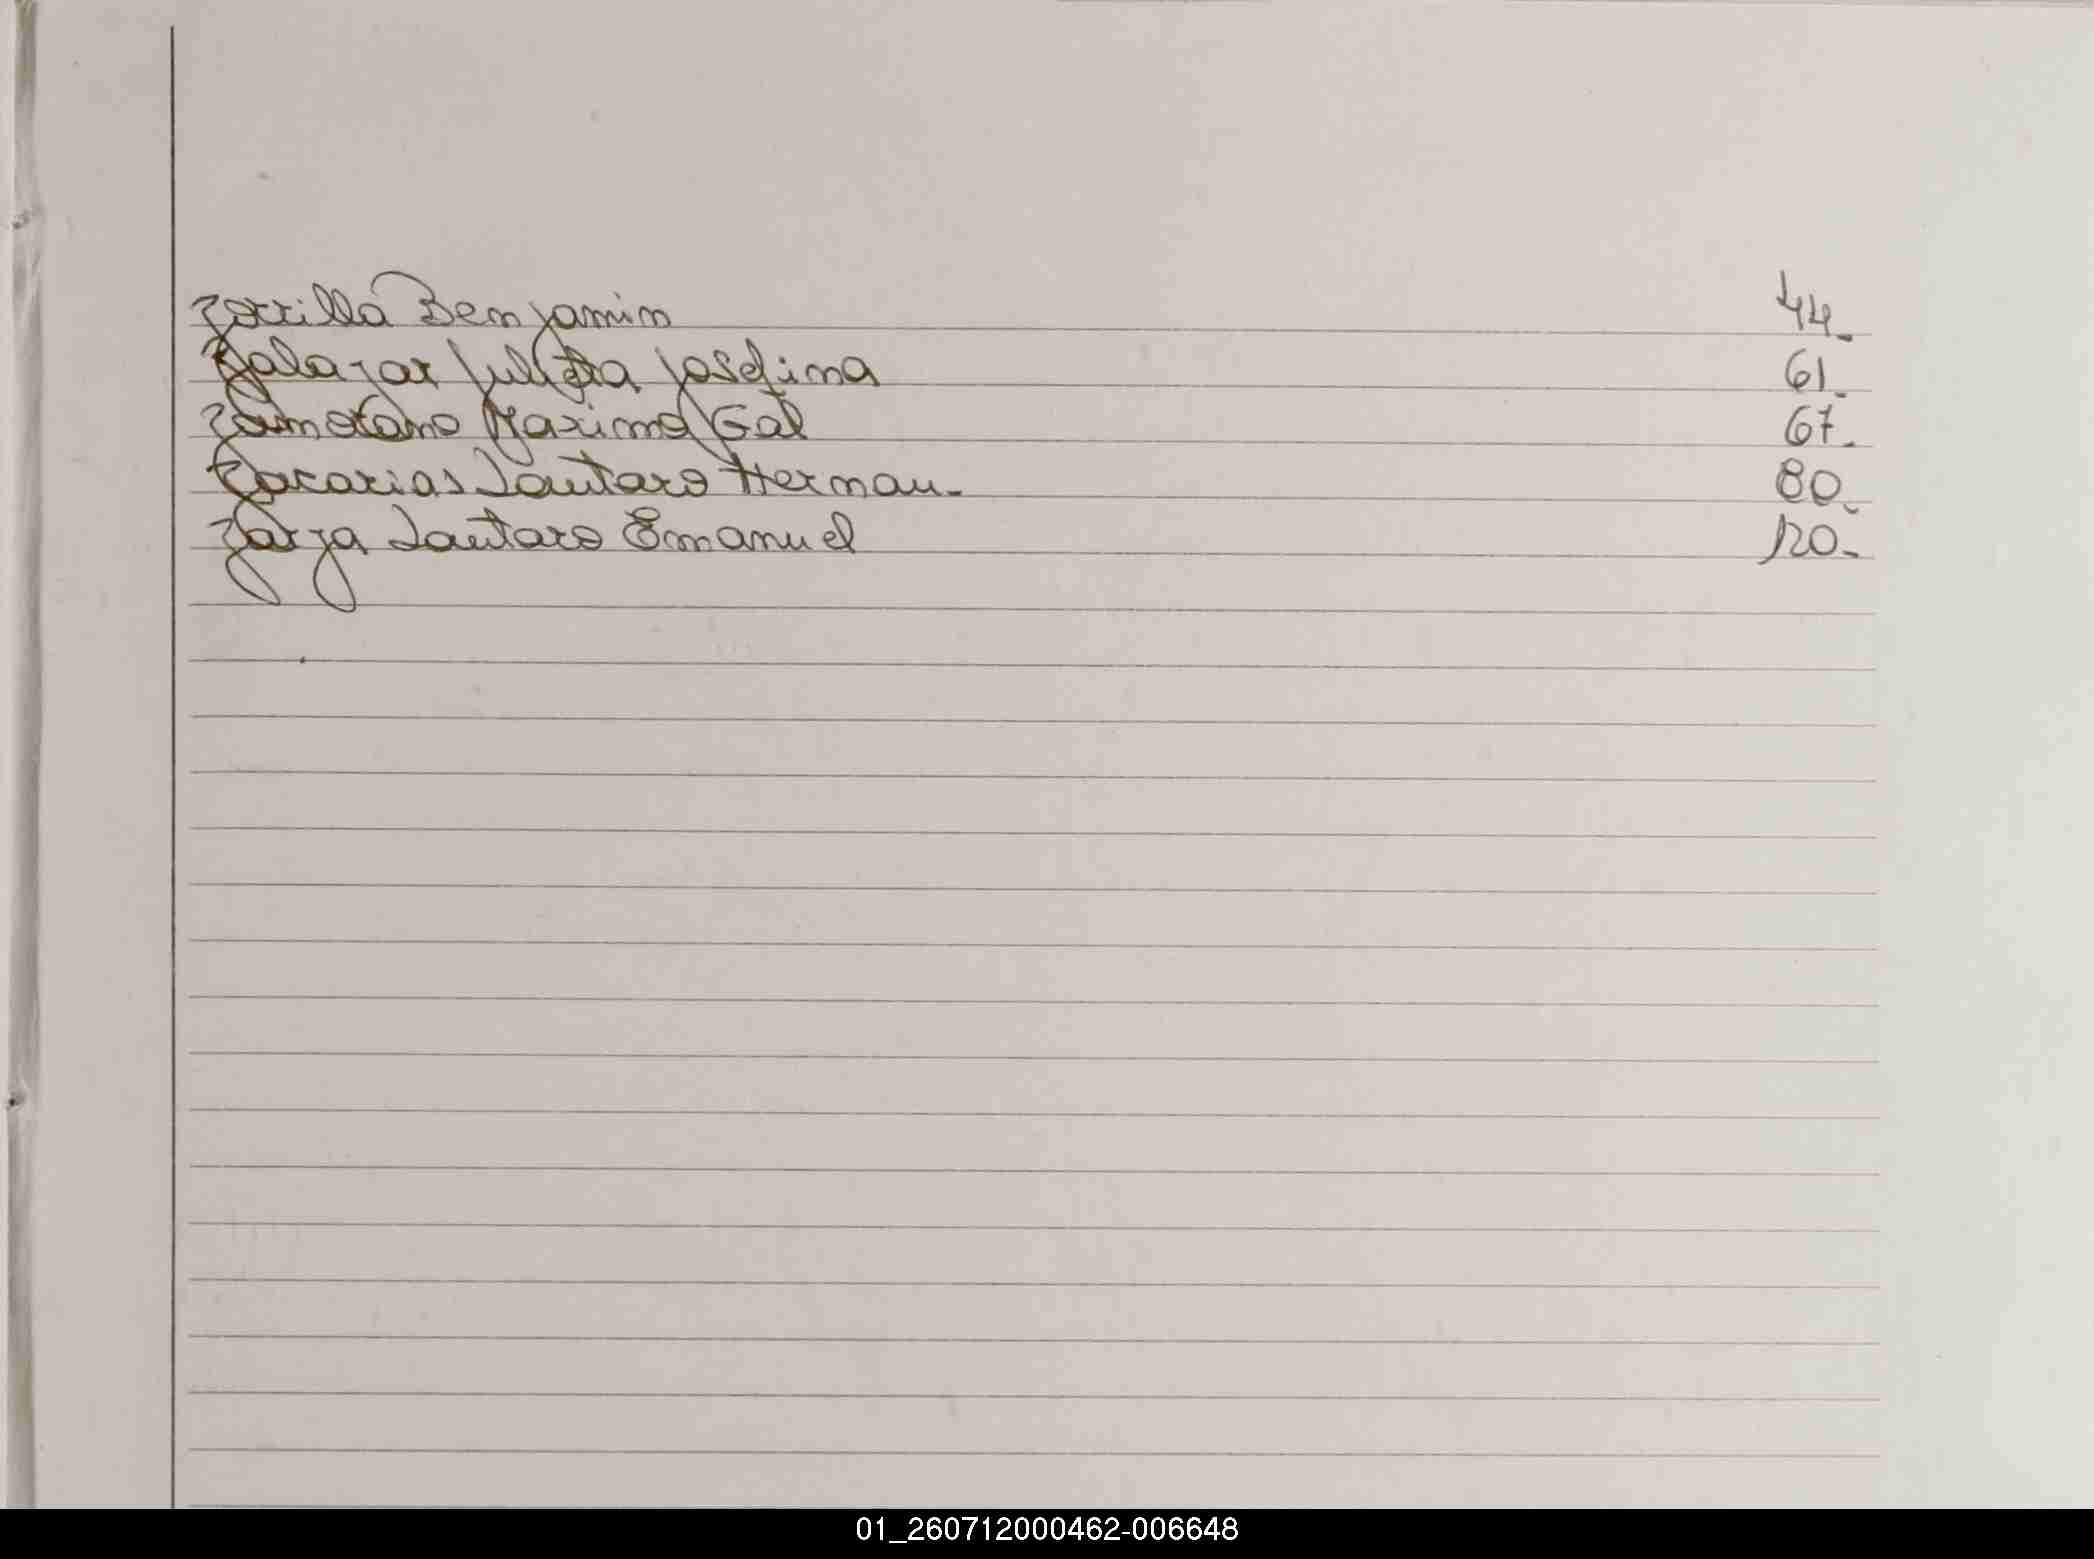 Zorrilla Benjamin 44-
Zalazar Julieta Josefina 61-
Zamorano Maximo Gal 67-
Zacarias Lautaro Hernan- 80-
Zarza Lautaro Emanuel 120-
01_260712000462-006648